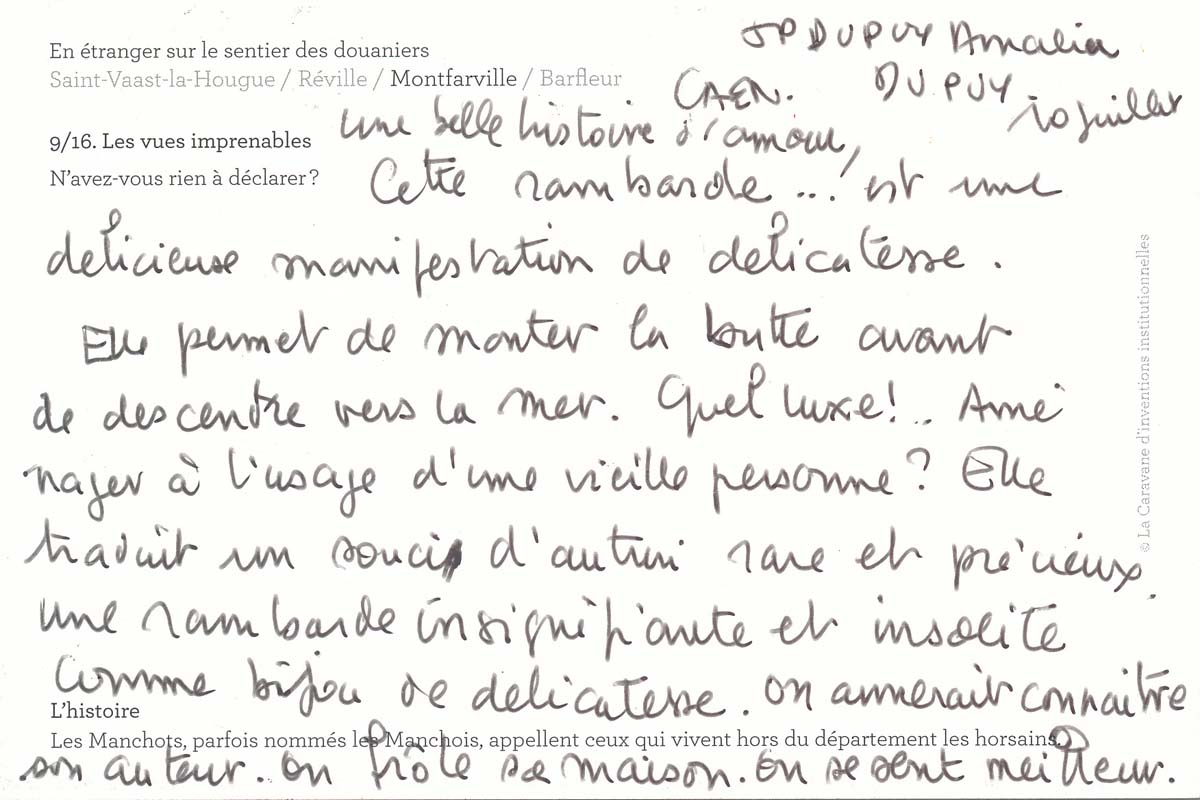 En étranger sur le sentier des douaniers
Saint-Vaast-la-Hougue / Réville / Montfarville / Barfleur
JP DUPUY Amalia
CAEN. DUPUY
10 juillet
9/16. Les vues imprenables
N'avez-vous rien à déclarer ?
une belle histoire d'amour,
Cette rambarde ...! est une
delicieuse manifestation de delicatesse.
Elle permet de monter la butte avant
de descendre vers la mer. Quel luxe!.. Amé
nager à l'usage d'une vieille personne ? Elle
traduit un souci d'autrui rare et précieux.
une rambarde insignifiante et insolite
comme bijou de delicatesse. on aimerait connaitre
L'histoire
Les Manchots, parfois nommés les Manchois, appellent ceux qui vivent hors du département les horsains.
son auteur. on frôle sa maison. on se sent meilleur.
© La Caravane d'inventions institutionnelles